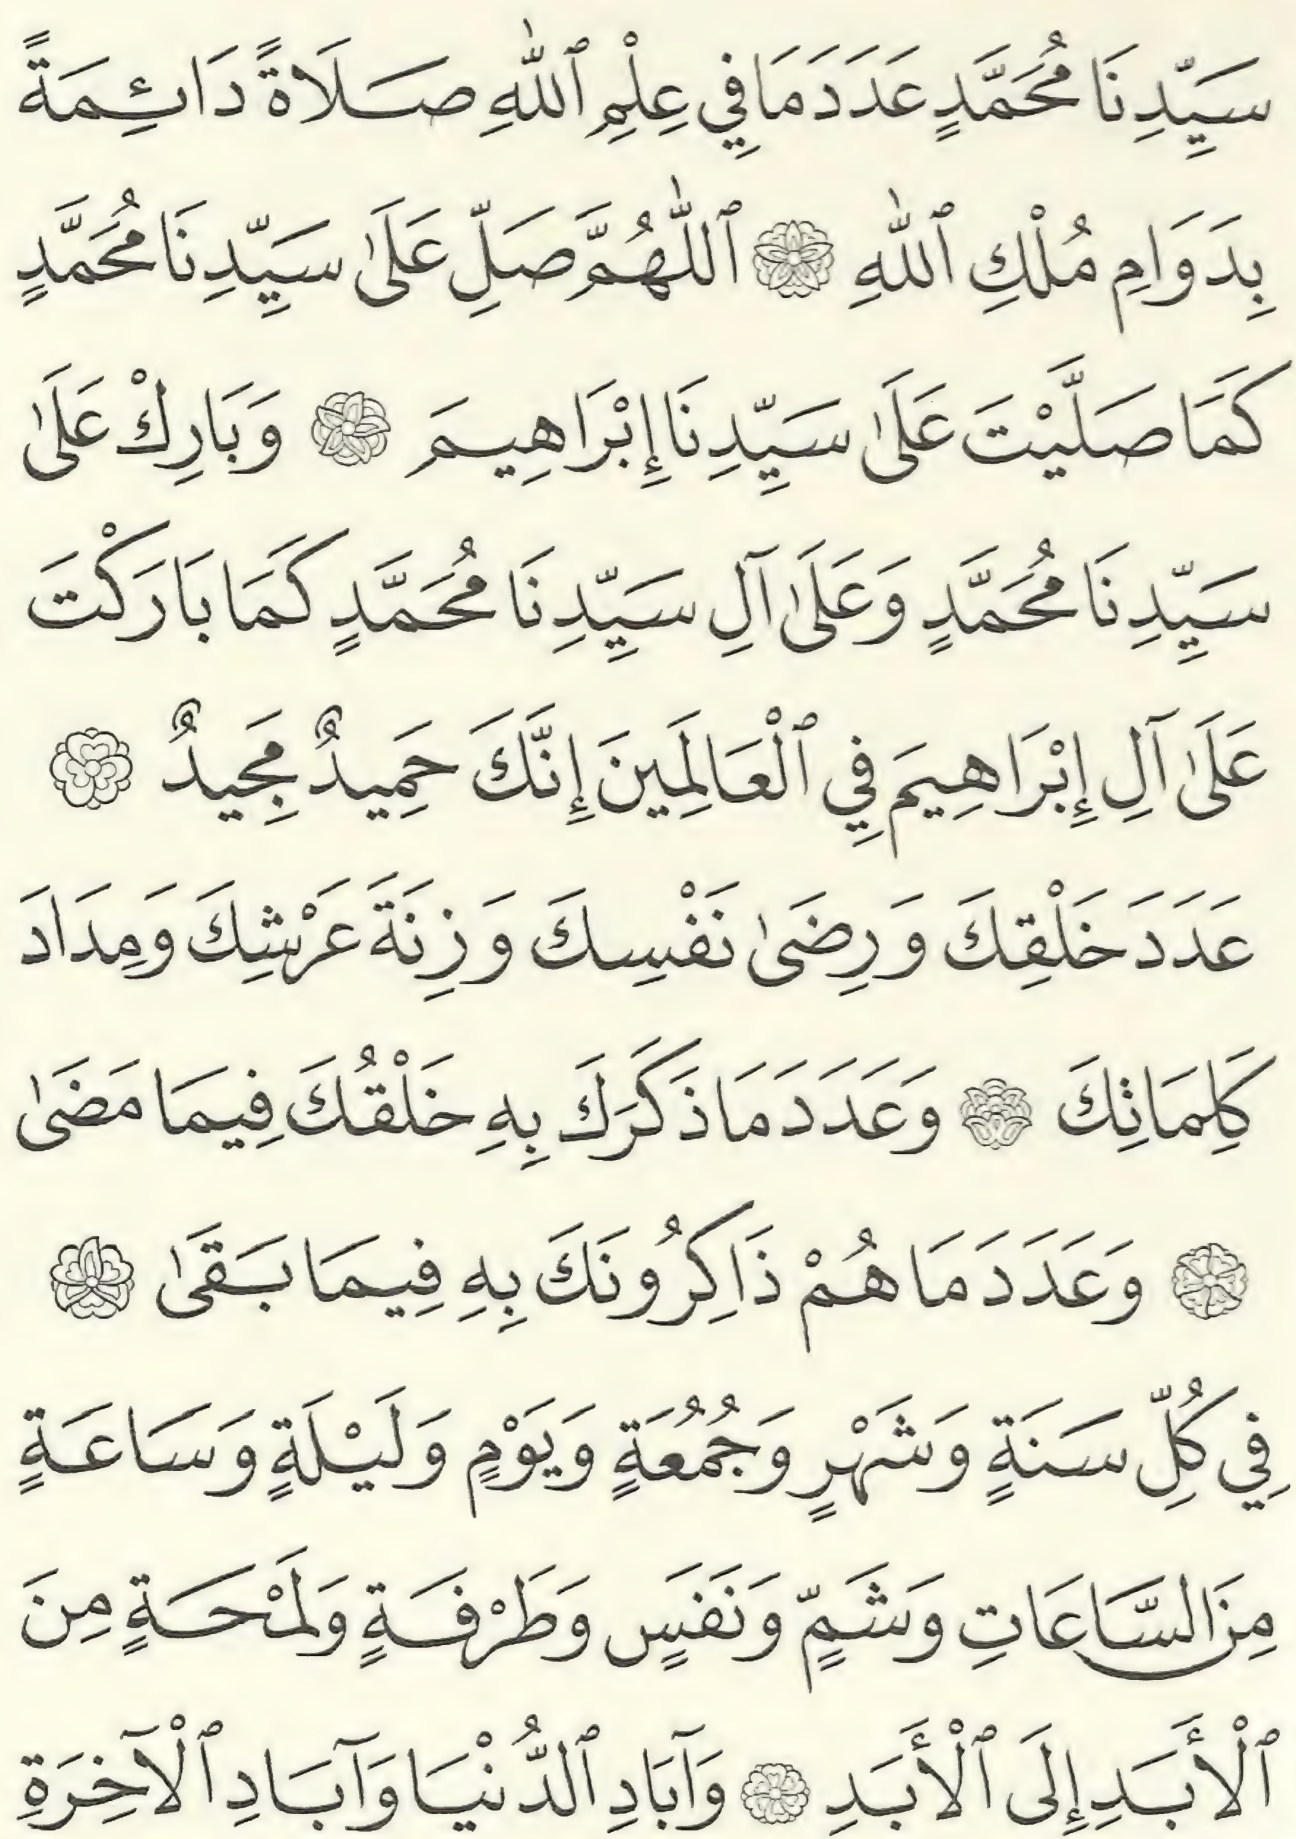 سَيِّدِنَا مُحَمَّدٍ عَدَدَ مَا فِي عِلْمِ ٱللّٰهِ صَلَاةً دَائِمَةً
بِدَوَامِ مُلْكِ ٱللّٰهِ ۞ ٱللّٰهُمَّ صَلِّ عَلَىٰ سَيِّدِنَا مُحَمَّدٍ
كَمَا صَلَّيْتَ عَلَىٰ سَيِّدِنَا إِبْرَاهِيمَ ۞ وَبَارِكْ عَلَىٰ
سَيِّدِنَا مُحَمَّدٍ وَعَلَىٰ آلِ سَيِّدِنَا مُحَمَّدٍ كَمَا بَارَكْتَ
عَلَىٰ آلِ إِبْرَاهِيمَ فِي ٱلْعَالَمِينَ إِنَّكَ حَمِيدٌ مَجِيدٌ ۞
عَدَدَ خَلْقِكَ وَرِضَىٰ نَفْسِكَ وَزِنَةَ عَرْشِكَ وَمِدَادَ
كَلِمَاتِكَ ۞ وَعَدَدَ مَا ذَكَرَكَ بِهِ خَلْقُكَ فِيمَا مَضَىٰ
۞ وَعَدَدَ مَا هُمْ ذَاكِرُونَكَ بِهِ فِيمَا بَقَىٰ ۞
فِي كُلِّ سَنَةٍ وَشَهْرٍ وَجُمُعَةٍ وَيَوْمٍ وَلَيْلَةٍ وَسَاعَةٍ
مِنَ السَّاعَاتِ وَشَمٍّ وَنَفَسٍ وَطَرْفَةٍ وَلَمْحَةٍ مِنَ
ٱلْأَبَدِ إِلَى ٱلْأَبَدِ ۞ وَآبَادِ ٱلدُّنْيَا وَآبَادِ ٱلْآخِرَةِ